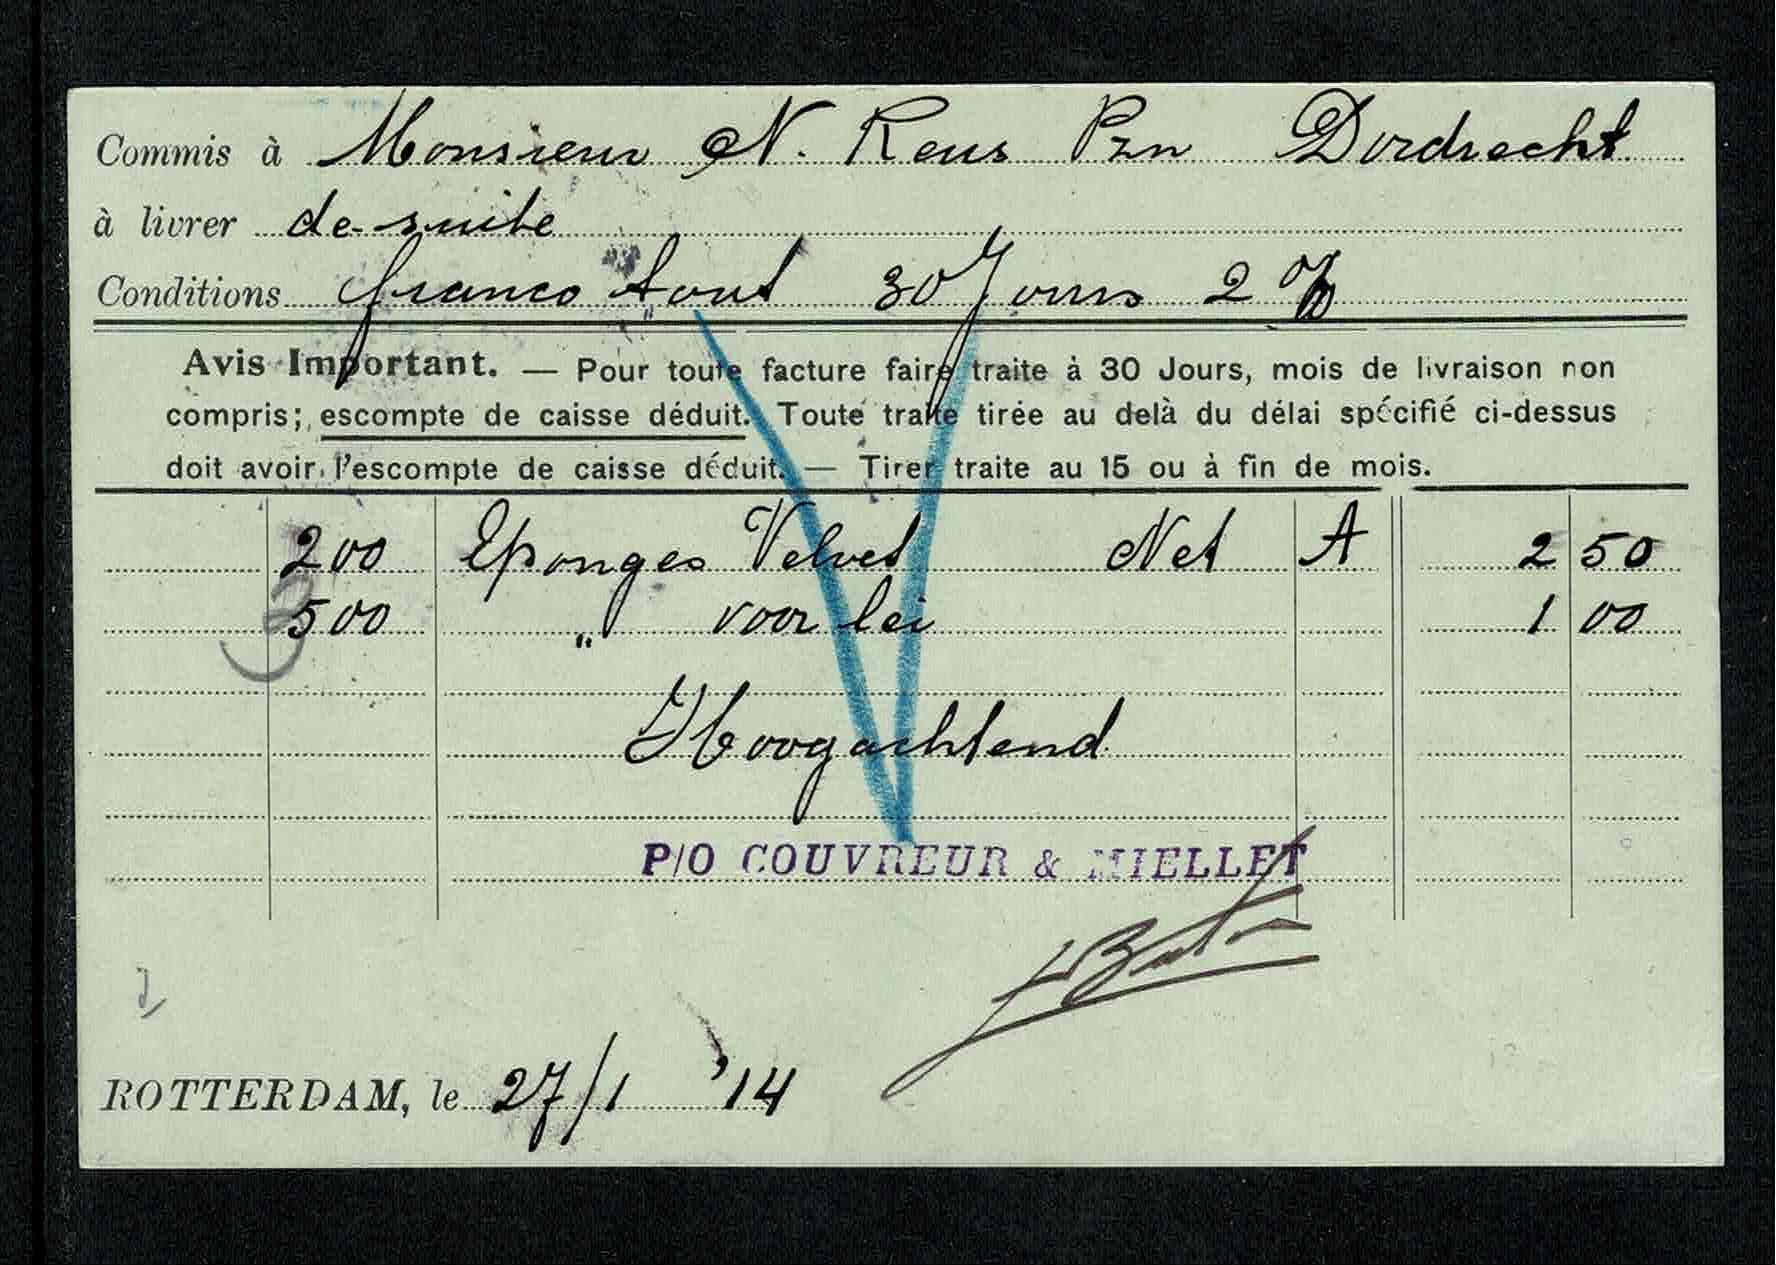 Commis à Monsieur N. Reus Pzn Dordrecht
à livrer de suite
Conditions franco tout 30 Jours 2 %
Avis Important. — Pour toute facture faire traite à 30 Jours, mois de livraison non
compris; escompte de caisse déduit. Toute traite tirée au delà du délai spécifié ci-dessus
doit avoir l'escompte de caisse déduit. — Tirer traite au 15 ou à fin de mois.
200 Eponges Velvet Net A 2 50
500 „ voor lei 1 00
Hoogachtend
P/O COUVREUR & MIELLET
ROTTERDAM, le 27/1 '14